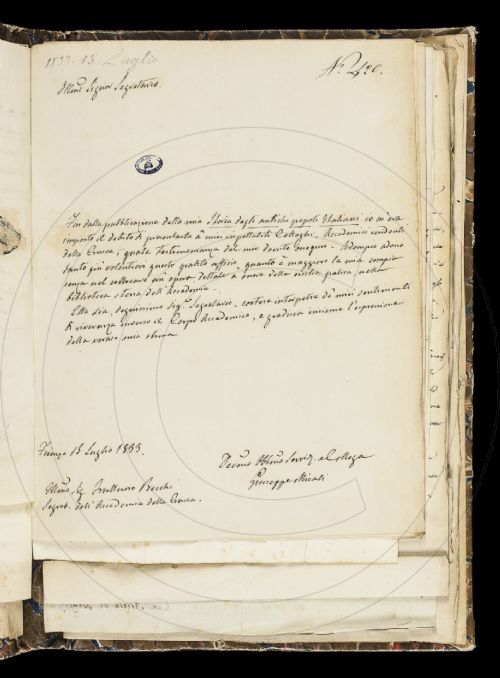 1833. 15. Luglio
N.º 420.
Illmo. Signor Segretario.
Fin dalla pubblicazione della mia Storia degli antichi popoli Italiani io m'era
imposto il debito di presentarla a miei rispettabili Colleghi, Accademici residenti
della Crusca, quale testimonianza del mio devoto ossequio. Adempio adesso
tanto più volentieri questo gratito officio, quanto è maggiore la mia compia
cenza nel collocare un'opera dettata a onore della nostra patria nella
biblioteca stessa dell'Accademia.
Ella sia, degnissimo Sig.e Segretario, cortese interprete de' miei sentimenti
di riverenza inverso il Corpo Accademico, e gradisca insieme l'espressione
della verace mia stima
Firenze 15 Luglio 1833.
Devmo Obbmo Servid.e e Collega
Giuseppe Micali
Illmo Sig. Fruttuoso Becchi
Segret. dell'Accademia della Crusca.